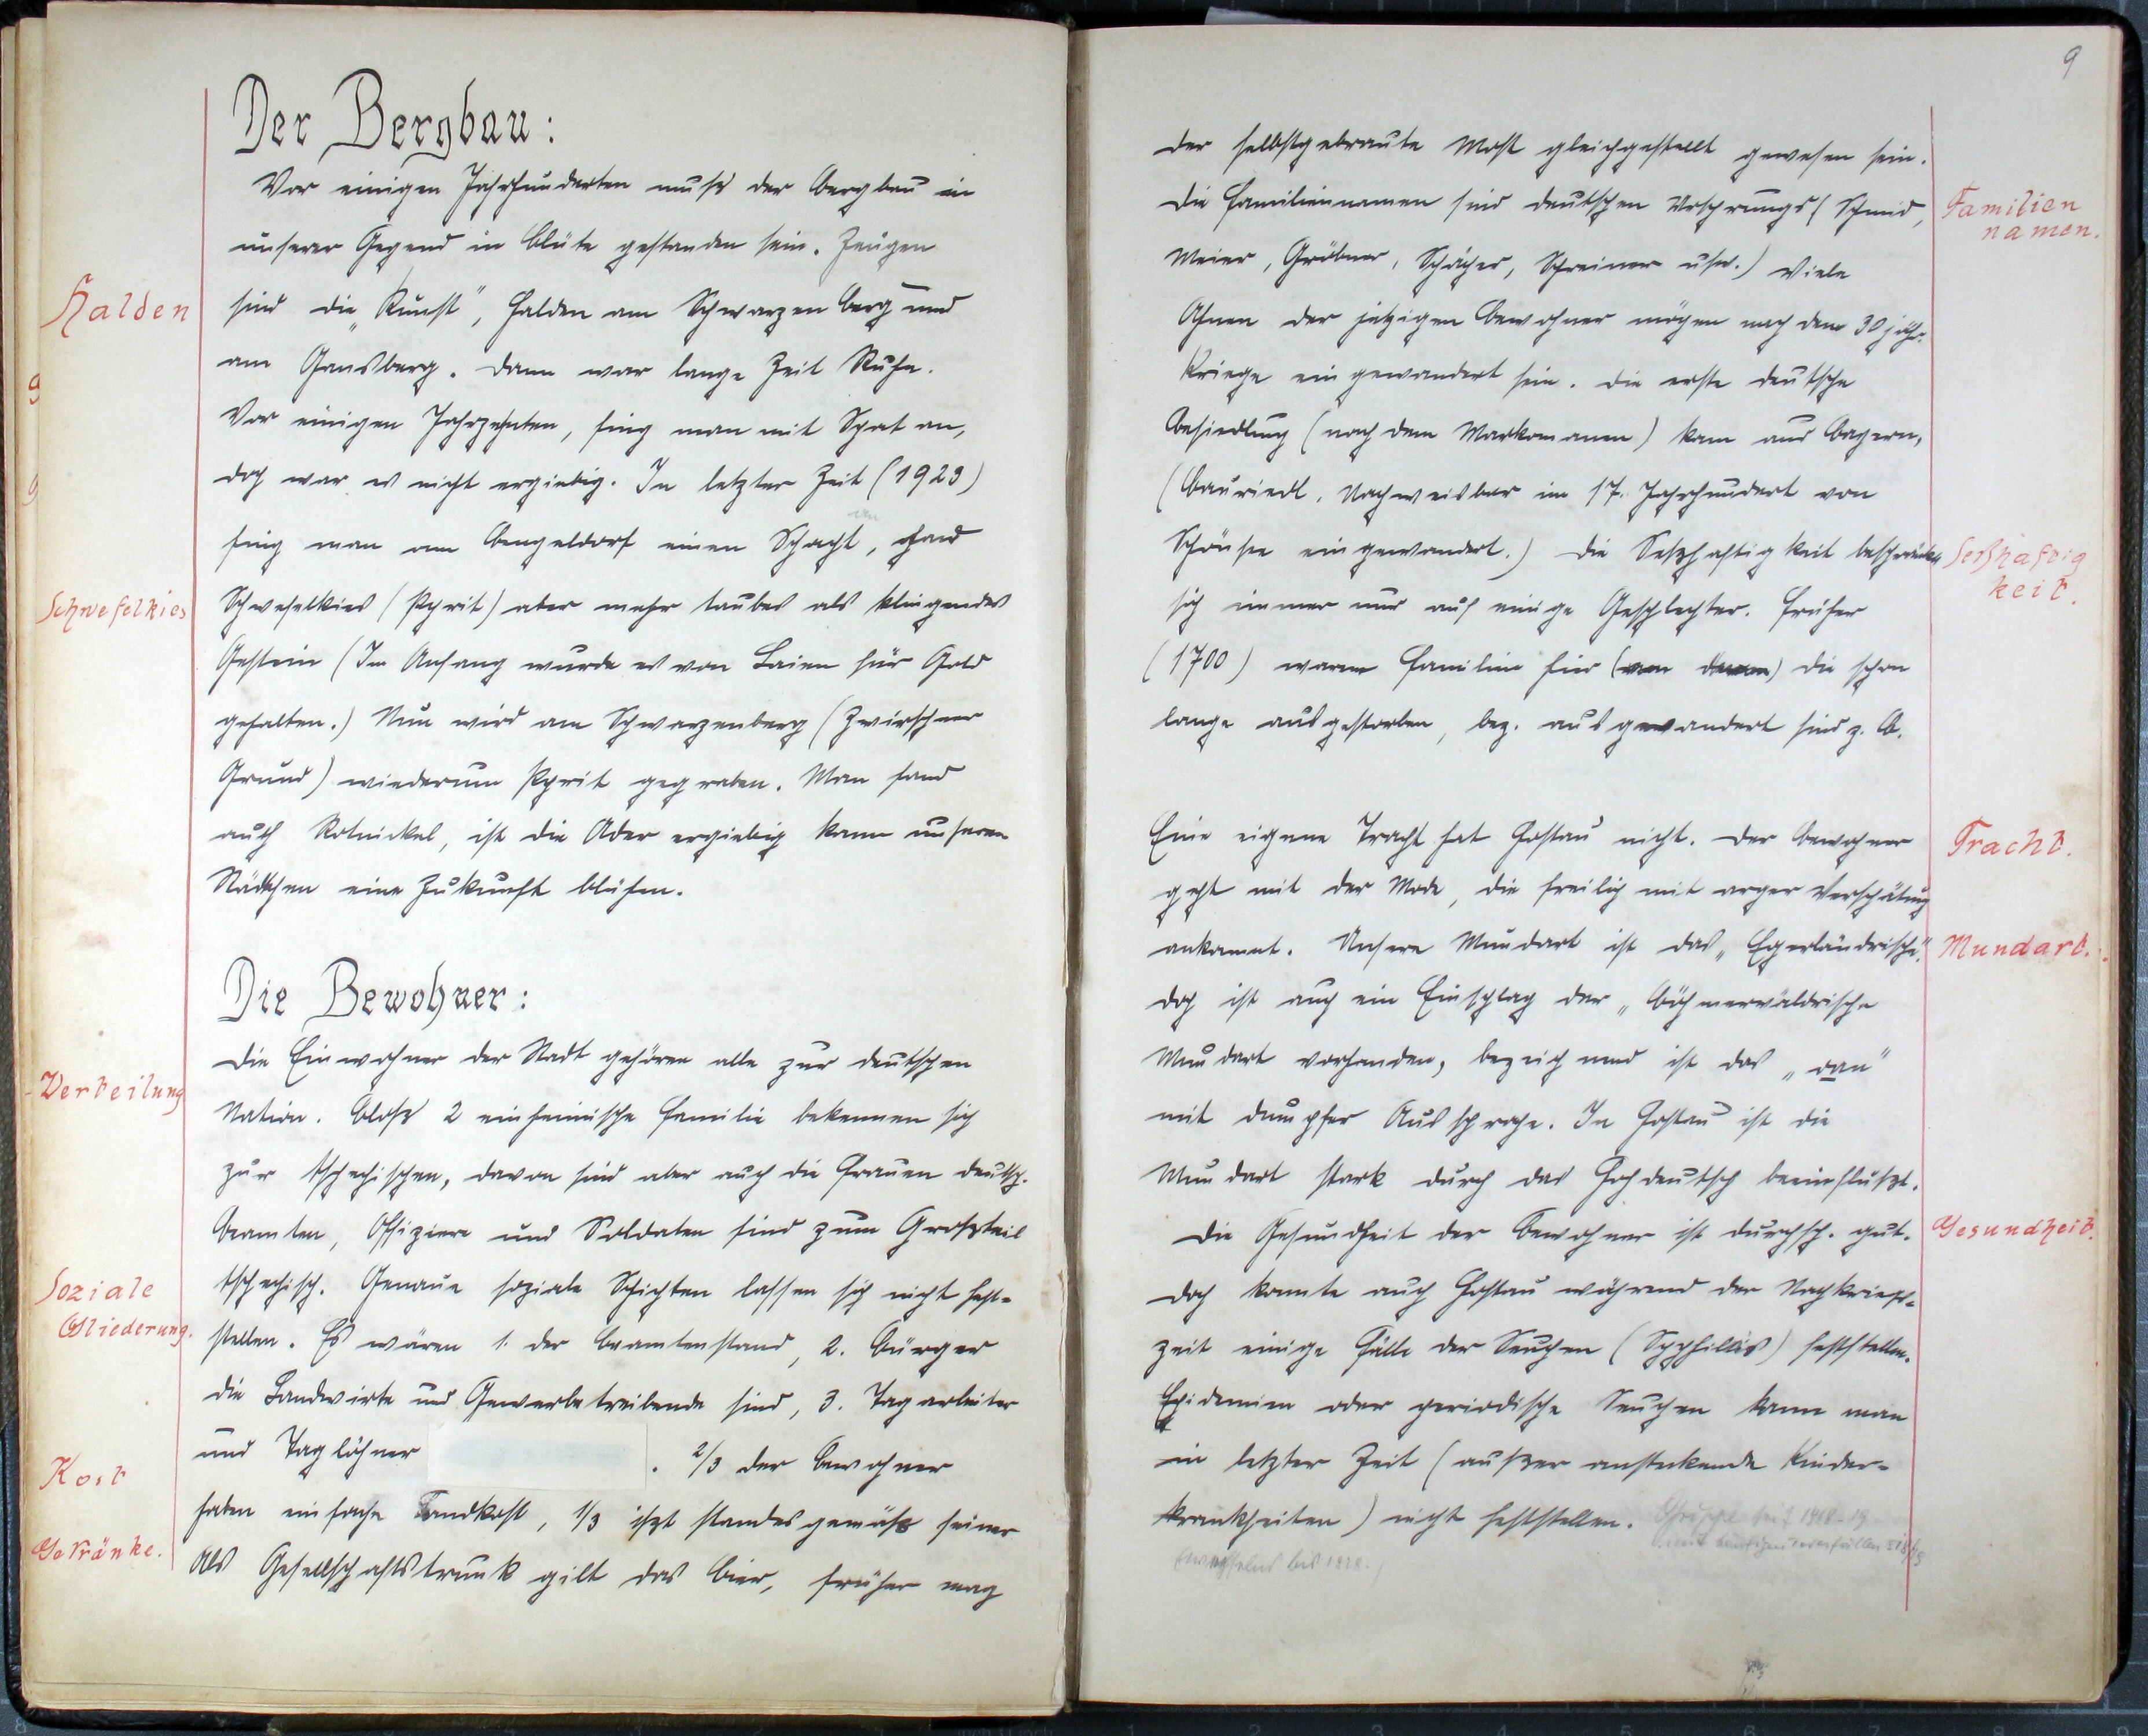 Der Bergbau:
Vor einigen Jahrhunderten muß der Bergbau in
unserer Gegend in Blüte gestanden sein. Zeugen
Halden
sind die „Kunst", Halden am Schwarzen Berg und
am Gansberg. Dann war lange Zeit Ruhe.
Vor einigen Jahrzehnten, fing man mit Spat an,
doch war es nicht ergiebig. In letzter Zeit (1923)
fing man am Bengeldorf einen Schacht, fand
Schwefelkies
Schwefelkies (Pyrit) aber mehr taubes als klingendes
Gestein (Im Anfang wurde es von Laien für Gold
gehalten.) Nun wird am Schwarzenberg (Zwirschner
Grund) wiederum Pyrit gegraben. Man fand
auch Rotnickel, ist die Ader ergiebig kann unseren
Städtchen eine Zukunft blühen.
Die Bewohner:
Die Einwohner der Stadt gehören alle zur deutschen
Verteilung
Nation. Bloß 2 einheimische Familie bekennen sich
zur tschechischen, davon sind aber auch die Frauen deutsch.
Beamten, Offiziere und Soldaten sind zum Großteil
Soziale
Gliederung.
tschechisch. Genaue soziale Schichten lassen sich nicht fest-
stellen. Es wären 1. der Beamtenstand, 2. Bürger
die Landwirte und Gewerbetreibende sind, 3. Tagarbeiter
Kost
und Taglöhner . 2/3 der Bewohner
haben einfache Landkost, 1/3 ißt standesgemäß seiner
Getränke.
Als Gesellschaftstrunk gilt das Bier, früher mag
9
der selbstgebraute Most gleichgestellt gewesen sein.
Die Familiennamen sind deutschen Ursprungs (Schmid,
Familien
namen.
Meier, Gröbner, Schächer, Schreiner usw.) Viele
Ahnen der jetzigen Bewohner mögen nach dem 30 jähr.
Kriege eingewandert sein. Die erste deutsche
Besiedlung (nach dem Markomanen) kam aus Bayern,
(Bauriedl, Nachweisbar im 17. Jahrhundert von
Schönsee eingewandert.) Die Seßhaftigkeit beschränkt
Seßhaftig
keit.
sich immer nur auf einige Geschlechter. Früher
(1700) waren Familien hier die schon
lange ausgestorben, bez. ausgewandert sind z. B.
Eine eigene Tracht hat Hostau nicht. Der Bewohner
Tracht.
geht mit der Mode, die freilich mit arger Verspätung
ankommt. Unsere Mundart ist das „Egerländrische".
Mundart.
doch ist auch ein Einschlag der „böhmerwäldrische
Mundart vorhanden, bezeichnend ist das „oan"
mit dumpfer Aussprache. In Hostau ist die
Mundart stark durch das Hochdeutsch beeinflußt.
Die Gesundheit der Bewohner ist durchsch. gut.
Gesundheit.
doch konnte auch Hostau während der Nachkriegs-
zeit einige Fälle der Seuchen (Syphillis) feststellen.
Epidemien oder periodische Seuchen kann man
in letzter Zeit (außer ansteckende Kinder-
krankheiten) nicht feststellen. Grippe seit 1918-19
bis 1928.)